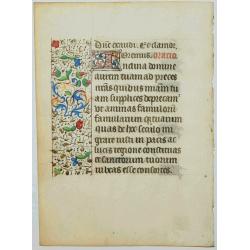 Dñe exaudi. Et clamor
Oremus. Oracio
Inclina domine
aurem tuam ad preces
nr̃as quibus miam̃ tu
am supplices deprecam̃
ut animas famulorũ
famularum qz tuarum
quas de hoc seculo mi
grare iussisti in pacis ac
lucis regione constituas
et sanctorum tuorum
iubeas esse consortes.